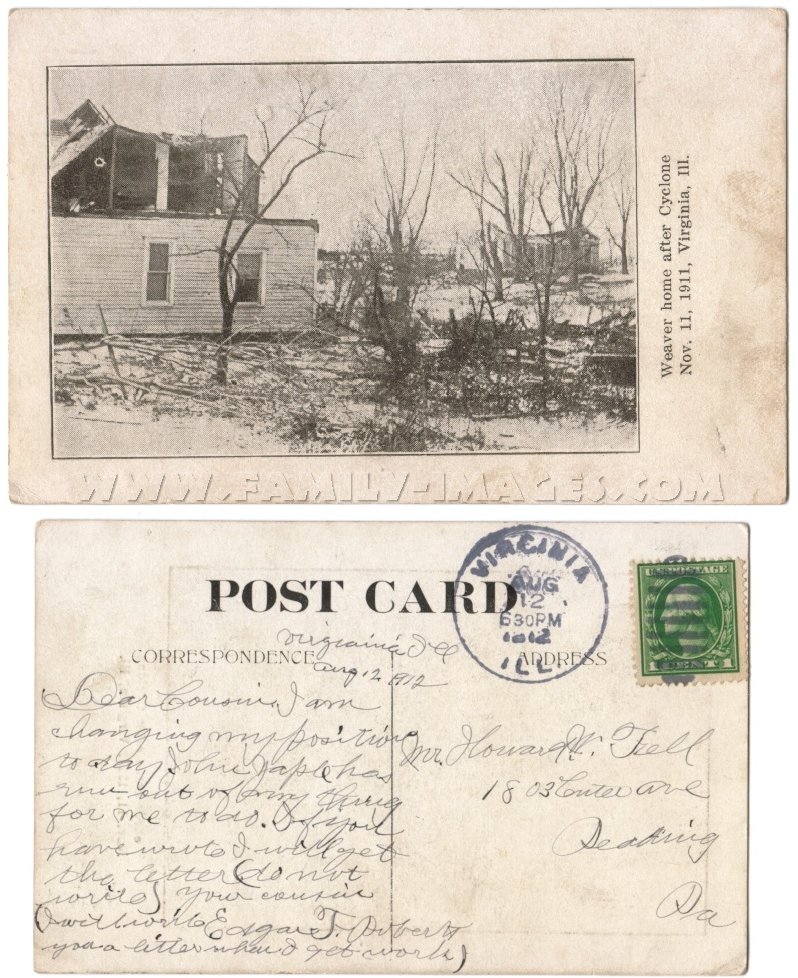 Weaver home after Cyclone
Nov. 11, 1911, Virginia, Ill.
WWW.FAMILY-IMAGES.COM
POST CARD
CORRESPONDENCE
ADDRESS
VIRGINIA
AUG
12
630PM
1912
ILL.
U.S. POSTAGE
1 CENT 1
Virginia Ill
Aug 12 1912
Dear Cousin, I am
changing my position
to day John has
run out of any thing
for me to do. If you
have wrote I will get
the letter (do not
write) your cousin
(I will write Edgar T.
you a letter when I get work)
Mr. Howard W. Fell
1803 Center Ave
Reading
Pa